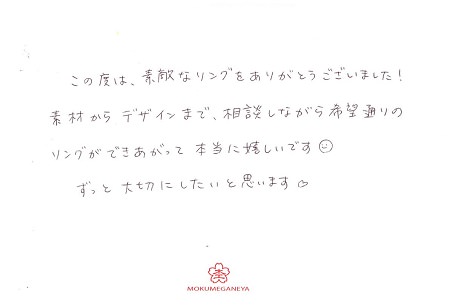 この度は、素敵なリングをありがとうございました！
素材からデザインまで、相談しながら希望通りの
リングができあがって本当に嬉しいです☺
ずっと大切にしたいと思います♡
MOKUMEGANEYA